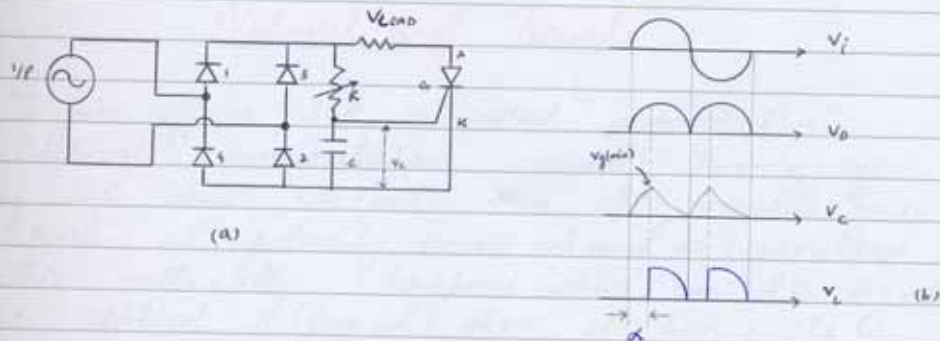 VLOAD
I/P
1
3
R
A
G
K
4
2
C
Vc
(a)
Vi
VD
Vg(min)
Vc
VL
(b)
α